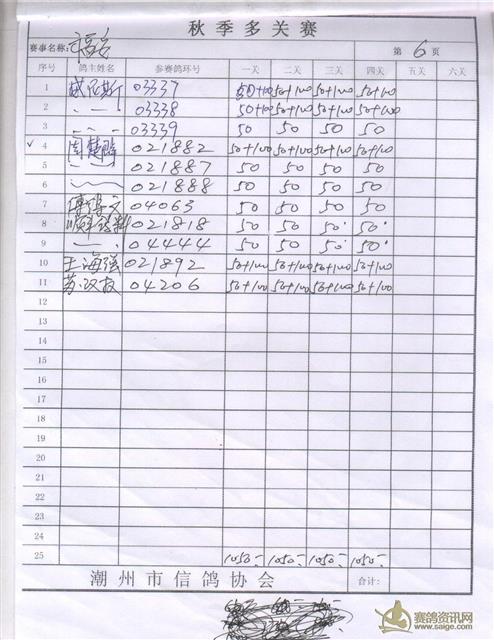 秋季多关赛
赛事名称: 福安 第 6 页
序号 鸽主姓名 参赛鸽环号 一关 二关 三关 四关 五关 六关
1 威尼斯 03337 50+100 50+100 50+100 50+100
2 03338 50+100 50+100 50+100 50+100
3 03339 50 50 50 50
✓ 4 021882 50+100 50+100 50+100 50+100
5 021887 50 50 50 50
6 021888 50 50 50 50
7 04063 50 50 50 50
8 021818 50 50 50 50
9 04444 50 50 50 50
10 王海强 021892 50+100 50+100 50+100 50+100
11 苏汉枝 04206 50+100 50+100 50+100 50+100
12
13
14
15
16
17
18
19
20
21
22
23
24
25 1050- 1050- 1050- 1050-
潮州市信鸽协会 合计:
赛鸽资讯网
www.saige.com